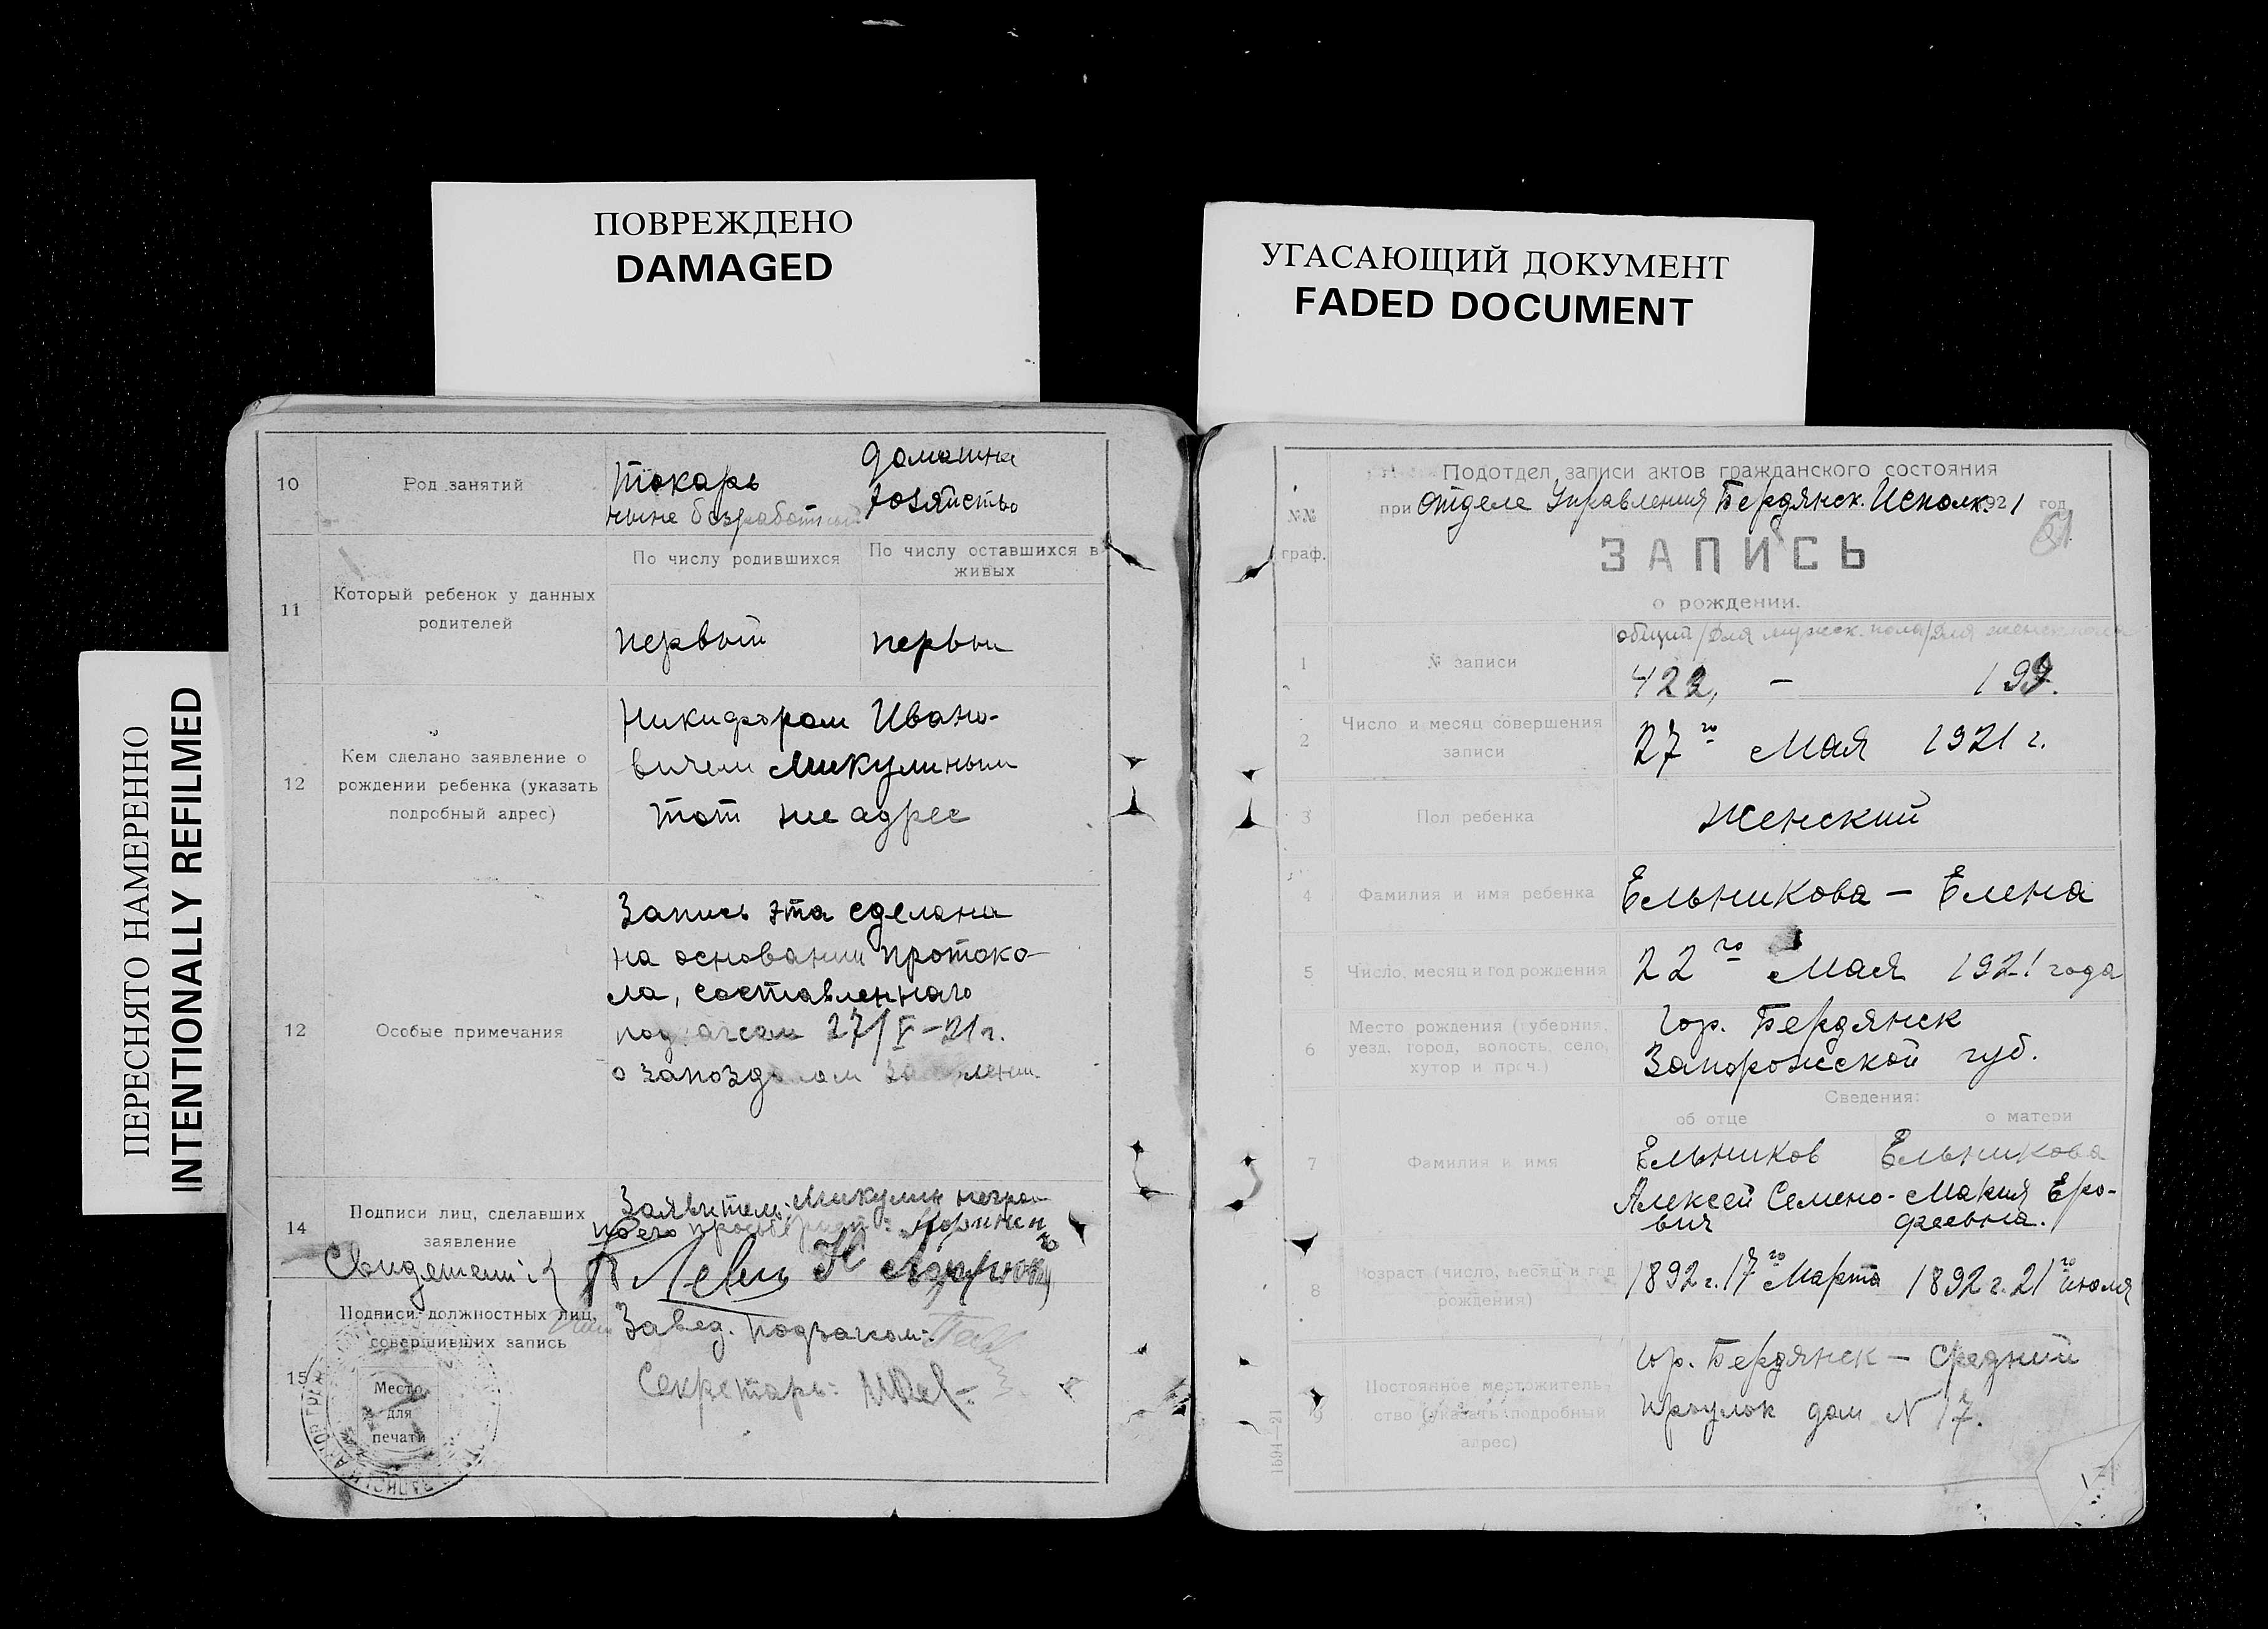 ПОВРЕЖДЕНО
DAMAGED
УГАСАЮЩИЙ ДОКУМЕНТ
FADED DOCUMENT
ПЕРЕСНЯТО НАМЕРЕННО
INTENTIONALLY REFILMED
10 Род занятий Токарь домашне
ныне безработный хозяйство
11 Который ребенок у данных родителей
По числу родившихся По числу оставшихся в живых
первый первый
12 Кем сделано заявление о рождении ребенка (указать подробный адрес)
Никифором Ивано-
вичем Микулиным
тот же адрес
12 Особые примечания
Запись эта сделана
на основании протоко-
ла, составленного
27/V-21г.
о запоздалом заявлении
14 Подписи лиц, сделавших заявление
Заявитель: Микулин неграм
Свидетели: Левин
Подписи должностных лиц, совершивших запись
Завед. Подзагсом:
15 Секретарь:
Место
для
печати
Подотдел записи актов гражданского состояния
при Отделе Управления Бердянск. Исполк. 1921 год
№№
граф.
ЗАПИСЬ
о рождении.
общий/для мужск. пола/для женск. пола
1 № записи 422, — 199.
2 Число и месяц совершения записи 27го Мая 1921 г.
3 Пол ребенка Женский
4 Фамилия и имя ребенка Ельникова — Елена
5 Число, месяц и год рождения 22го Мая 1921 года
6 Место рождения (губерния, уезд, город, волость, село, хутор и проч.)
Гор. Бердянск
Запорожской губ.
Сведения:
об отце о матери
7 Фамилия и имя Ельников Ельникова
Алексей Семено- Мария Еро-
вич феевна.
8 Возраст (число, месяц и год рождения) 1892 г. 17го Марта 1892 г. 21го июля
9 Постоянное местожительство (указать подробный адрес)
Гор. Бердянск — Средний
проулок дом N 17.
1594—21